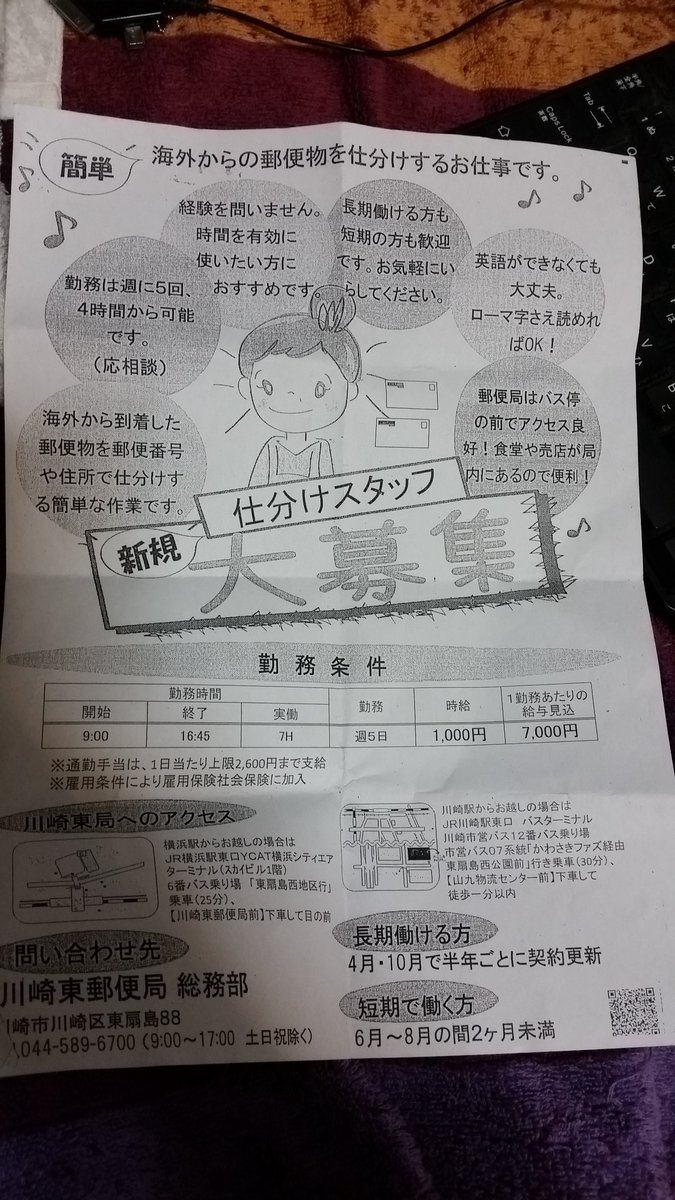 簡単
海外からの郵便物を仕分けするお仕事です。
経験を問いません。
時間を有効に
使いたい方に
おすすめです。
長期働ける方も
短期の方も歓迎
です。お気軽にい
らしてください。
勤務は週に5回、
4時間から可能
です。
（応相談）
英語ができなくても
大丈夫。
ローマ字さえ読めれ
ばOK！
海外から到着した
郵便物を郵便番号
や住所で仕分けす
る簡単な作業です。
郵便局はバス停
の前でアクセス良
好！食堂や売店が局
内にあるので便利！
仕分けスタッフ
新規
大募集
勤務条件
勤務時間 勤務 時給 1勤務あたりの
給与見込
開始 終了 実働
9:00 16:45 7H 週5日 1,000円 7,000円
※通勤手当は、1日当たり上限2,600円まで支給
※雇用条件により雇用保険社会保険に加入
川崎東局へのアクセス
横浜駅からお越しの場合は
JR横浜駅東口YCAT横浜シティエア
ターミナル（スカイビル1階）
6番バス乗り場 「東扇島西地区行」
乗車（25分）、
【川崎東郵便局前】下車して目の前
川崎駅からお越しの場合は
JR川崎駅東口 バスターミナル
川崎市営バス12番バス乗り場
市営バス07系統「かわさきファズ経由
東扇島西公園前」行き乗車（30分）、
【山九物流センター前】下車して
徒歩一分以内
問い合わせ先
川崎東郵便局 総務部
川崎市川崎区東扇島88
044-589-6700（9:00～17:00 土日祝除く）
長期働ける方
4月・10月で半年ごとに契約更新
短期で働く方
6月～8月の間2ヶ月未満
Tab
Caps Lock
英数
半角
全角
Q
W
D
V